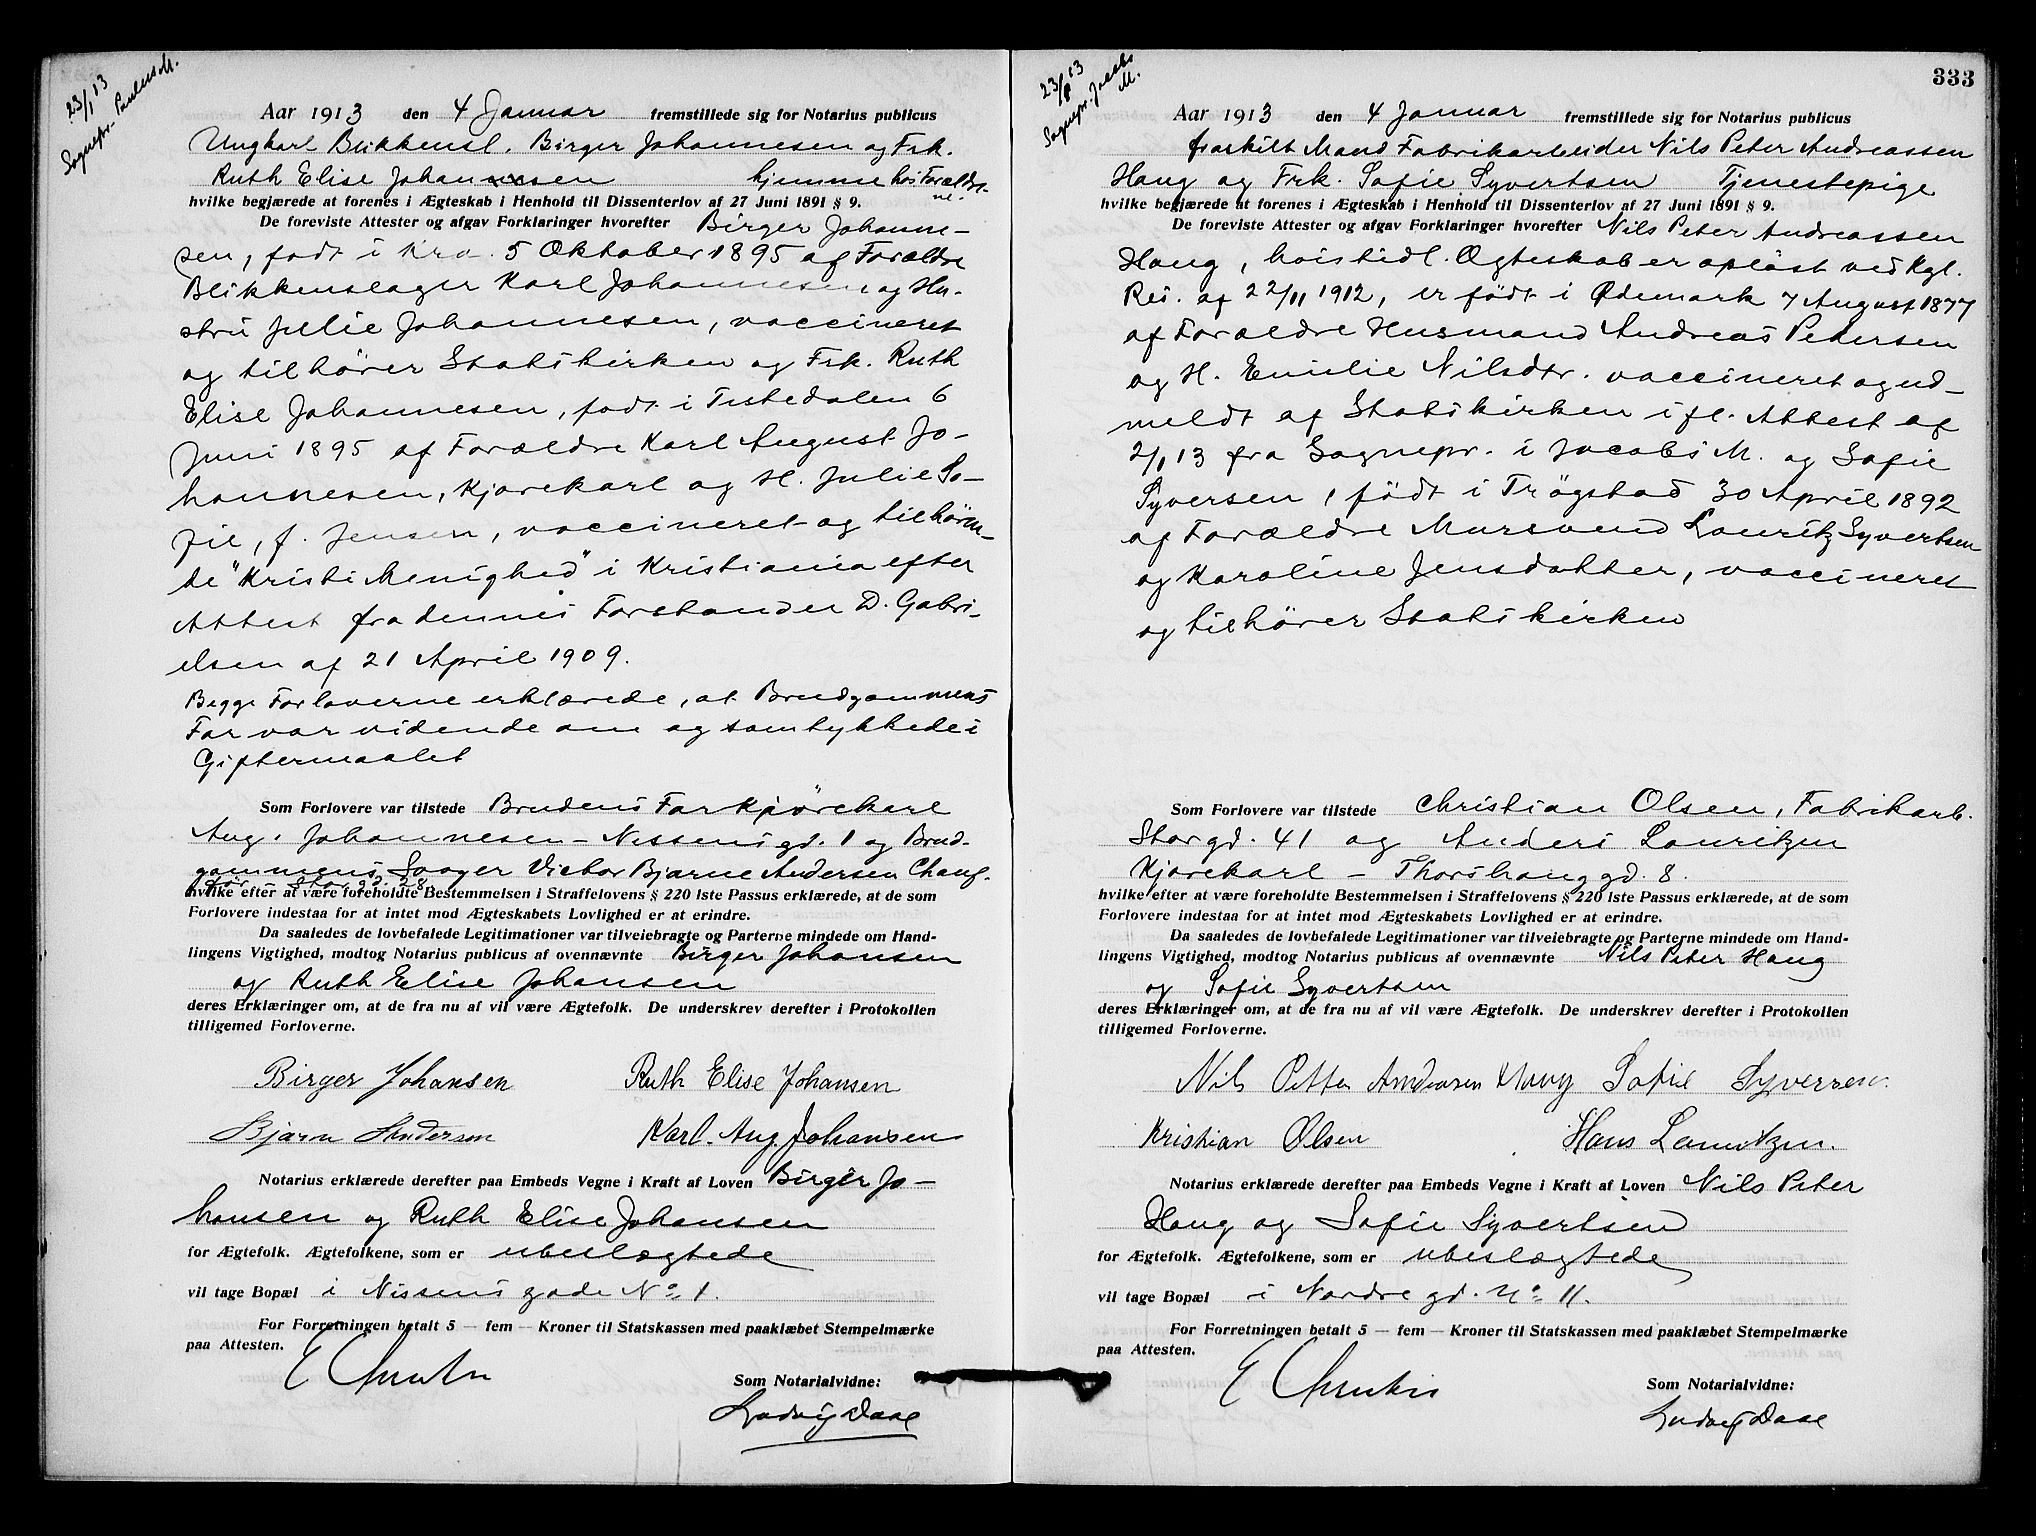 23/1 13
Sognepr. Paulus M.
Aar 1913 den 4 Januar fremstillede sig for Notarius publicus
Ungkarl Blikkensl. Birger Johannesen og Frk.
Ruth Elise Johannesen hjemme hos Forældre-
ne.
hvilke begjærede at forenes i Ægteskab i Henhold til Dissenterlov af 27 Juni 1891 § 9.
De foreviste Attester og afgav Forklaringer hvorefter Birger Johanne-
sen, født i Kra. 5 Oktober 1895 af Forældre
Blikkenslager Karl Johannesen og Hu-
stru Julie Johannesen, vaccineret
og tilhører Statskirken og Frk. Ruth
Elise Johannesen, født i Tistedalen 6
Juni 1895 af Forældre Karl August Jo-
hannesen, Kjørekarl og H. Julie So-
fie, f. Jensen, vaccineret og tilhøren-
de "Kristi Menighed" i Kristiania efter
Attest fra dennes Forstander D. Gabri-
elsen af 21 April 1909.
Begge Forloverne erklærede, at Brudgommens
Far var vidende om og samtykkede i
Giftermaalet
Som Forlovere var tilstede Brudens Far Kjørekarl
Aug. Johannesen - Nissensgd. 1 og Brud-
gommens Svoger Victor Bjarne Andersen Chauf-
hvilke efter at være foreholdte Bestemmelsen i Straffelovens § 220 1ste Passus erklærede, at de som
Forlovere indestaa for at intet mod Ægteskabets Lovlighed er at erindre.
Da saaledes de lovbefalede Legitimationer var tilveiebragte og Parterne mindede om Hand-
lingens Vigtighed, modtog Notarius publicus af ovennævnte Birger Johansen
og Ruth Elise Johansen
deres Erklæringer om, at de fra nu af vil være Ægtefolk. De underskrev derefter i Protokollen
tilligemed Forloverne.
Birger Johansen Ruth Elise Johansen
Bjarne Andersen Karl. Aug. Johansen
Notarius erklærede derefter paa Embeds Vegne i Kraft af Loven Birger Jo-
hansen og Ruth Elise Johansen
for Ægtefolk. Ægtefolkene, som er ubeslægtede
vil tage Bopæl i Nissens gade No 1.
For Forretningen betalt 5 — fem — Kroner til Statskassen med paaklæbet Stempelmærke
paa Attesten.
Som Notarialvidne:
Ludvig Daae
333
23/1 13
Sognepr. Jacobs
M.
Aar 1913 den 4 Januar fremstillede sig for Notarius publicus
fraskilt Mand Fabrikarbeider Nils Peter Andreassen
Haug og Frk. Sofie Syvertsen Tjenestepige
hvilke begjærede at forenes i Ægteskab i Henhold til Dissenterlov af 27 Juni 1891 § 9.
De foreviste Attester og afgav Forklaringer hvorefter Nils Peter Andreassen
Haug, hvis tidl. Ægteskab er opløst ved Kgl.
Res. af 22/11 1912, er født i Ødemark 7 August 1877
af Forældre Husmand Andreas Petersen
og H. Emilie Nilsdtr. vaccineret og ud-
meldt af Statskirken ifl. Attest af
2/1 13 fra Sognepr. i Jacobs M. og Sofie
Syversen, født i Trøgstad 30 April 1892
af Forældre Mursvend Lauritz Syvertsen
og Karoline Jensdatter, vaccineret
og tilhører Statskirken
Som Forlovere var tilstede Christian Olsen, Fabrikarb.
Storgd. 41 og Anders Lauritzen
Kjørekarl - Thorshauggd. 8.
hvilke efter at være foreholdte Bestemmelsen i Straffelovens § 220 1ste Passus erklærede, at de som
Forlovere indestaa for at intet mod Ægteskabets Lovlighed er at erindre.
Da saaledes de lovbefalede Legitimationer var tilveiebragte og Parterne mindede om Hand-
lingens Vigtighed, modtog Notarius publicus af ovennævnte Nils Peter Haug
og Sofie Syvertsen
deres Erklæringer om, at de fra nu af vil være Ægtefolk. De underskrev derefter i Protokollen
tilligemed Forloverne.
Nils Petter Andreasen Haug Sofie Syversen.
Kristian Olsen Hans Lauritzen.
Notarius erklærede derefter paa Embeds Vegne i Kraft af Loven Nils Peter
Haug og Sofie Syvertsen
for Ægtefolk. Ægtefolkene, som er ubeslægtede
vil tage Bopæl i Nordre gd. No 11.
For Forretningen betalt 5 — fem — Kroner til Statskassen med paaklæbet Stempelmærke
paa Attesten.
Som Notarialvidne:
Ludvig Daae